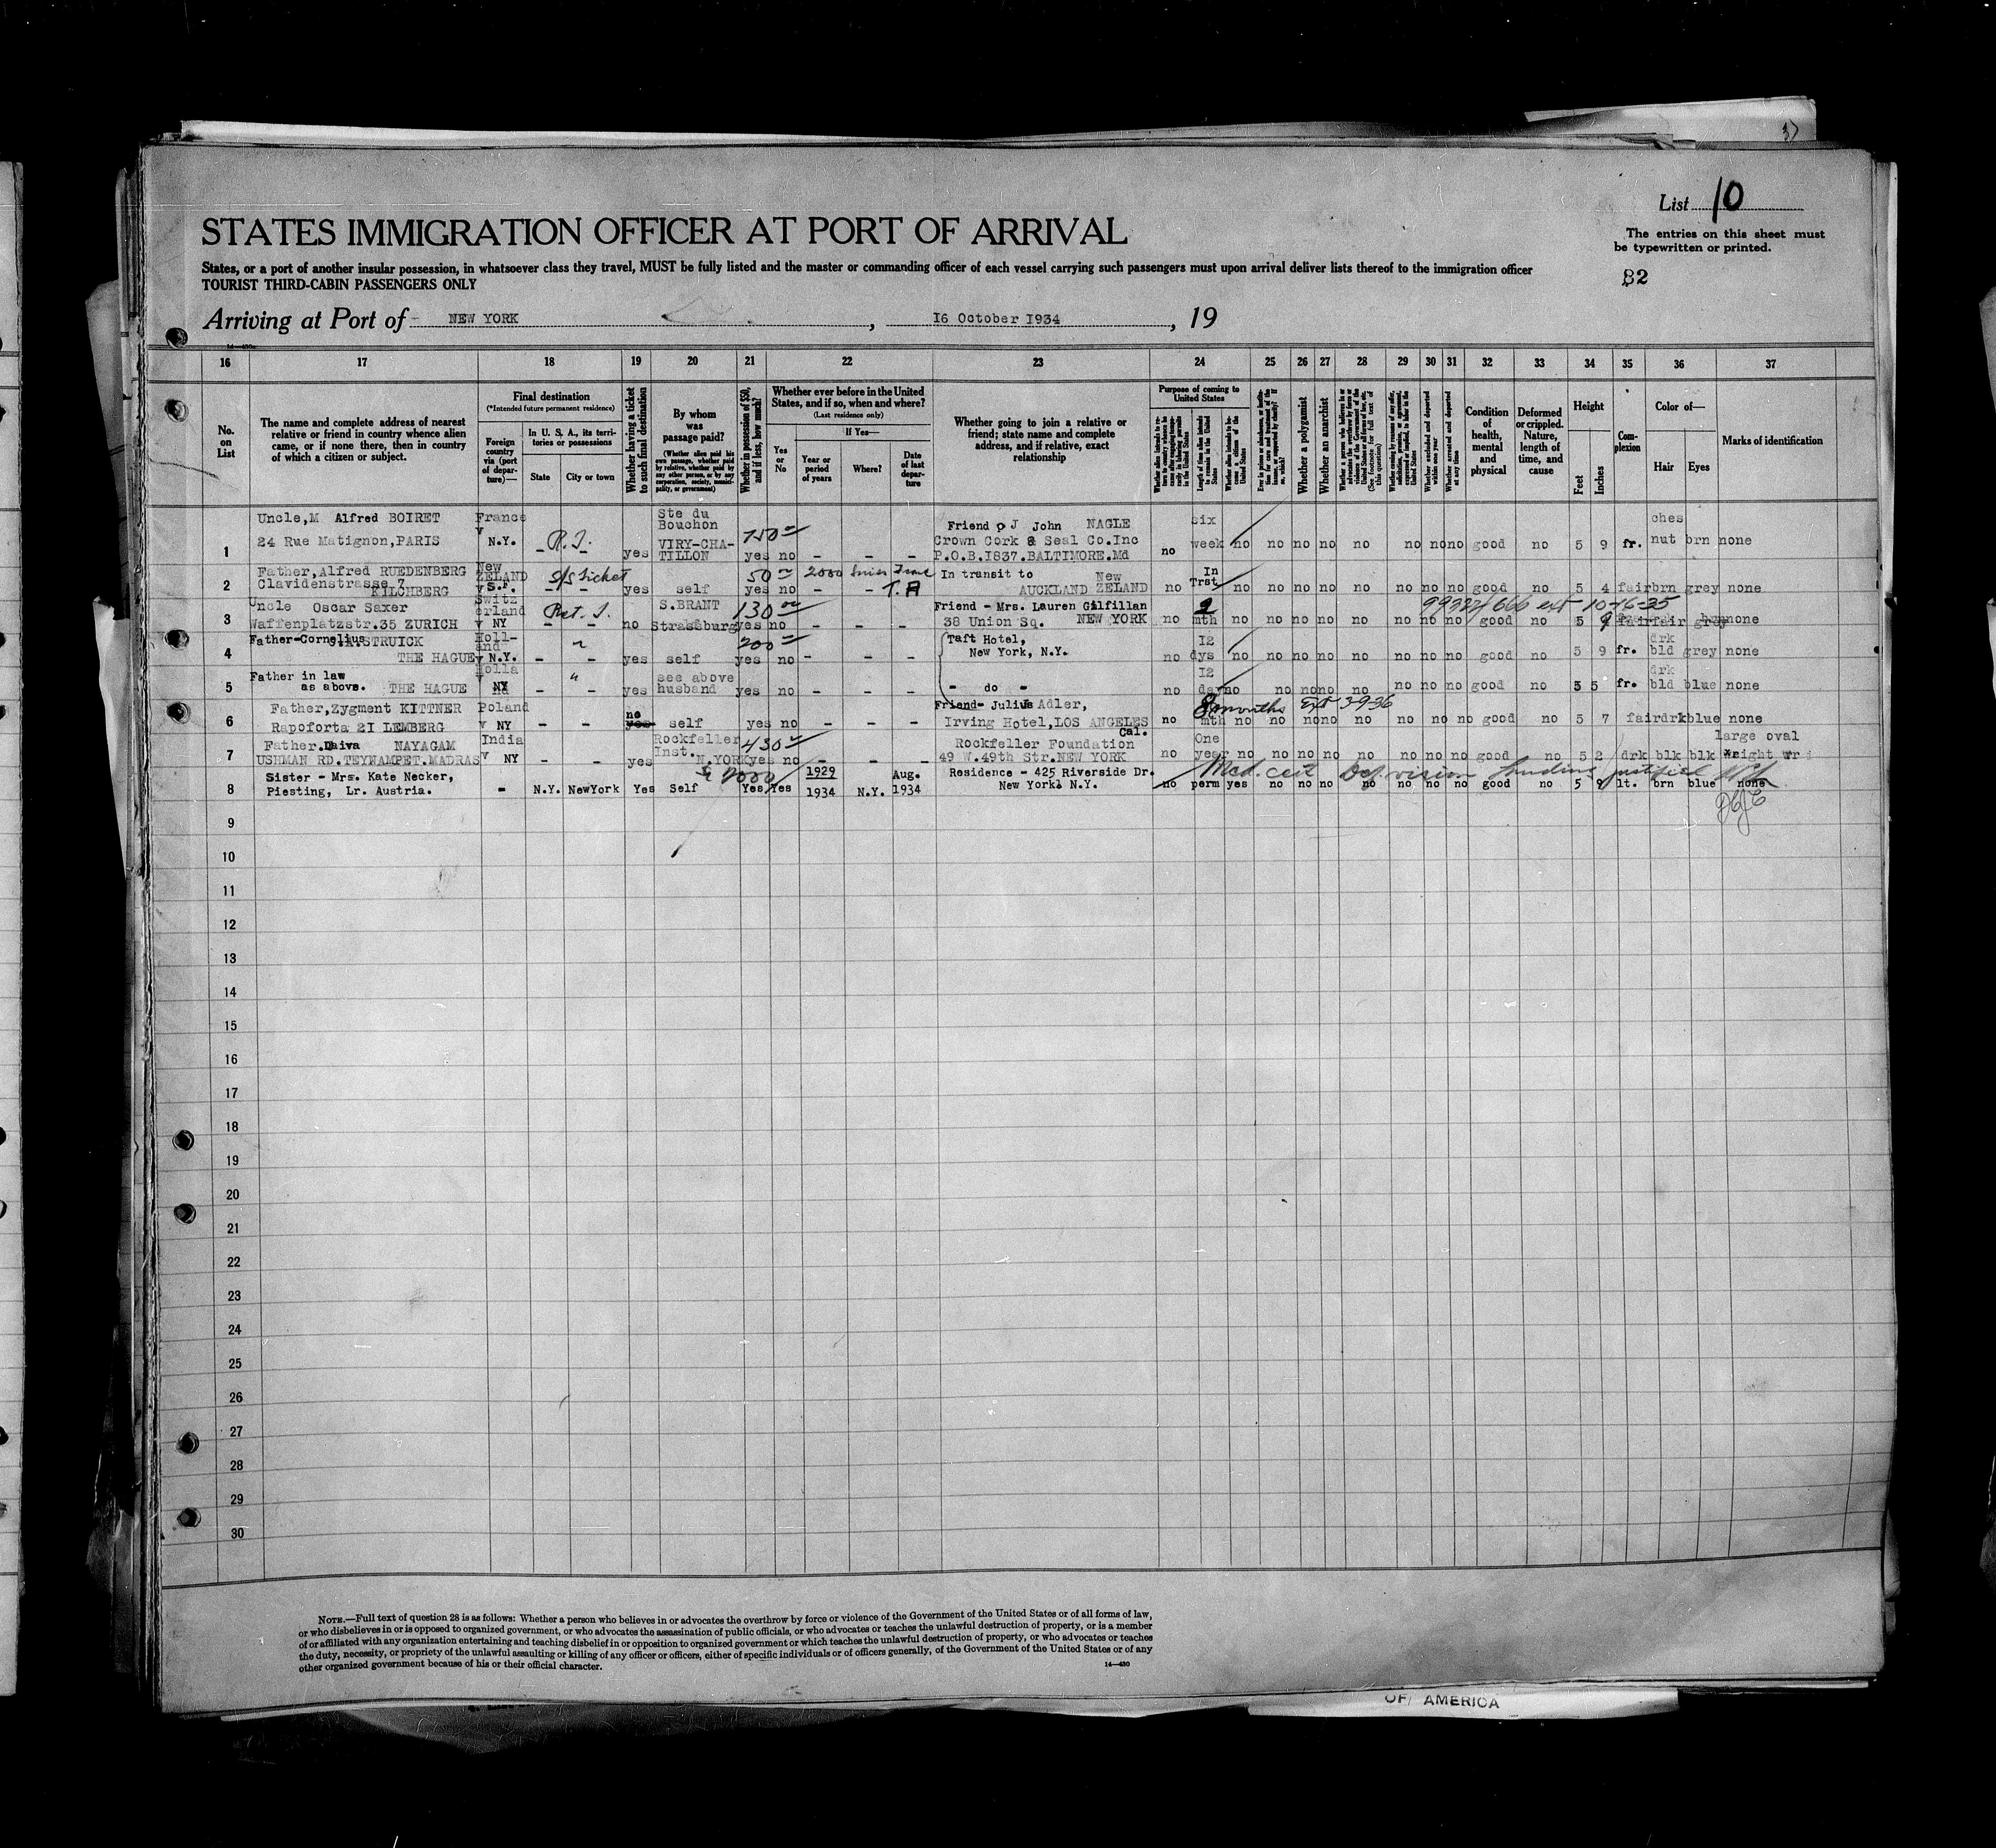 List 10
The entries on this sheet must
be typewritten or printed.
STATES IMMIGRATION OFFICER AT PORT OF ARRIVAL
States, or a port of another insular possession, in whatsoever class they travel, MUST be fully listed and the master or commanding officer of each vessel carrying such passengers must upon arrival deliver lists thereof to the immigration officer
TOURIST THIRD-CABIN PASSENGERS ONLY
82
Arriving at Port of NEW YORK, 16 October 1934, 19
16 17 18 19 20 21 22 23 24 25 26 27 28 29 30 31 32 33 34 35 36 37
No. on List
The name and complete address of nearest
relative or friend in country whence alien
came, or if none there, then in country
of which a citizen or subject.
Final destination
(*Intended future permanent residence)
Foreign country via (port of departure)—
In U. S. A., its territories or possessions
State
City or town
Whether having a ticket to such final destination
By whom was passage paid?
(Whether alien paid his own passage, whether paid by relative, whether paid by any other person, or by any corporation, society, municipality, or government)
Whether in possession of $50, and if less, how much?
Whether ever before in the United
States, and if so, when and where?
(Last residence only)
Yes or No
If Yes—
Year or period of years
Where?
Date of last departure
Whether going to join a relative or
friend; state name and complete
address, and if relative, exact
relationship
Purpose of coming to United States
Whether a polygamist
Whether an anarchist
Condition of health, mental and physical
Deformed or crippled. Nature, length of time, and cause
Height
Feet
Inches
Complexion
Color of—
Hair
Eyes
Marks of identification
Uncle,M Alfred BOIRET France Ste du Bouchon 150 Friend J John NAGLE six ches
24 Rue Matignon,PARIS V N.Y. Crown Cork & Seal Co.Inc
1 - - yes VIRY-CHATILLON yes no - - - P.O.B.1837.BALTIMORE.Md no week no no no no no no no no good no 5 9 fr. nut brn none
Father,Alfred RUEDENBERG New ZELAND S/S ticket 50 2000 T.A In transit to New In
2 Clavidenstrasse 7 KILCHBERG V S.F. - - yes self yes no - - AUCKLAND ZELAND no Trst no no no no no no no no good no 5 4 fair brn grey none
Uncle Oscar Saxer Switzerland S.BRANT 130 Friend - Mrs. Lauren Gilfillan 2 ext 10-16-35
3 Waffenplatzstr.35 ZURICH V NY - - no Strassburg yes no - - - 38 Union Sq. NEW YORK no mth no no no no no no no no good no 5 9 fair none
Father-Cornelius STRUICK Holland " 200 Taft Hotel, 12 drk
4 THE HAGUE V N.Y. - - yes self yes no - - - New York, N.Y. no dys no no no no no no no no good no 5 9 fr. bld grey none
Father in law Holla " see above 12 drk
5 as above. THE HAGUE NY - - yes husband yes no - - - - do - no day no no no no no no no no good no 5 5 fr. bld blue none
Father,Zygment KITTNER Poland no Friend- Julius Adler, 8 months Ext 3-9-36
6 Rapoforta 21 LEMBERG V NY - - yes self yes no - - - Irving Hotel,LOS ANGELES Cal. no mth no no no no no no no no good no 5 7 fair drk blue none
Father.Daiva NAYAGAM India Rockfeller 430 Rockfeller Foundation One large oval
7 USHMAN RD.TEYNAMPET.MADRAS V NY - - yes Inst. N.YORK yes no - - - 49 W.49th Str.NEW YORK no year no no no no no no no no good no 5 2 drk blk blk
Sister - Mrs. Kate Necker, 2000 1929 Aug. Residence - 425 Riverside Dr. Med. cert Def. vision
8 Piesting, Lr. Austria. - N.Y. NewYork Yes Self Yes Yes 1934 N.Y. 1934 New York, N.Y. no perm yes no no no no no no no good no 5 lt. brn blue none
9
10
11
12
13
14
15
16
17
18
19
20
21
22
23
24
25
26
27
28
29
30
NOTE.—Full text of question 28 is as follows: Whether a person who believes in or advocates the overthrow by force or violence of the Government of the United States or of all forms of law,
or who disbelieves in or is opposed to organized government, or who advocates the assassination of public officials, or who advocates or teaches the unlawful destruction of property, or is a member
of or affiliated with any organization entertaining and teaching disbelief in or opposition to organized government or which teaches the unlawful destruction of property, or who advocates or teaches
the duty, necessity, or propriety of the unlawful assaulting or killing of any officer or officers, either of specific individuals or of officers generally, of the Government of the United States or of any
other organized government because of his or their official character.
14—430
OF AMERICA